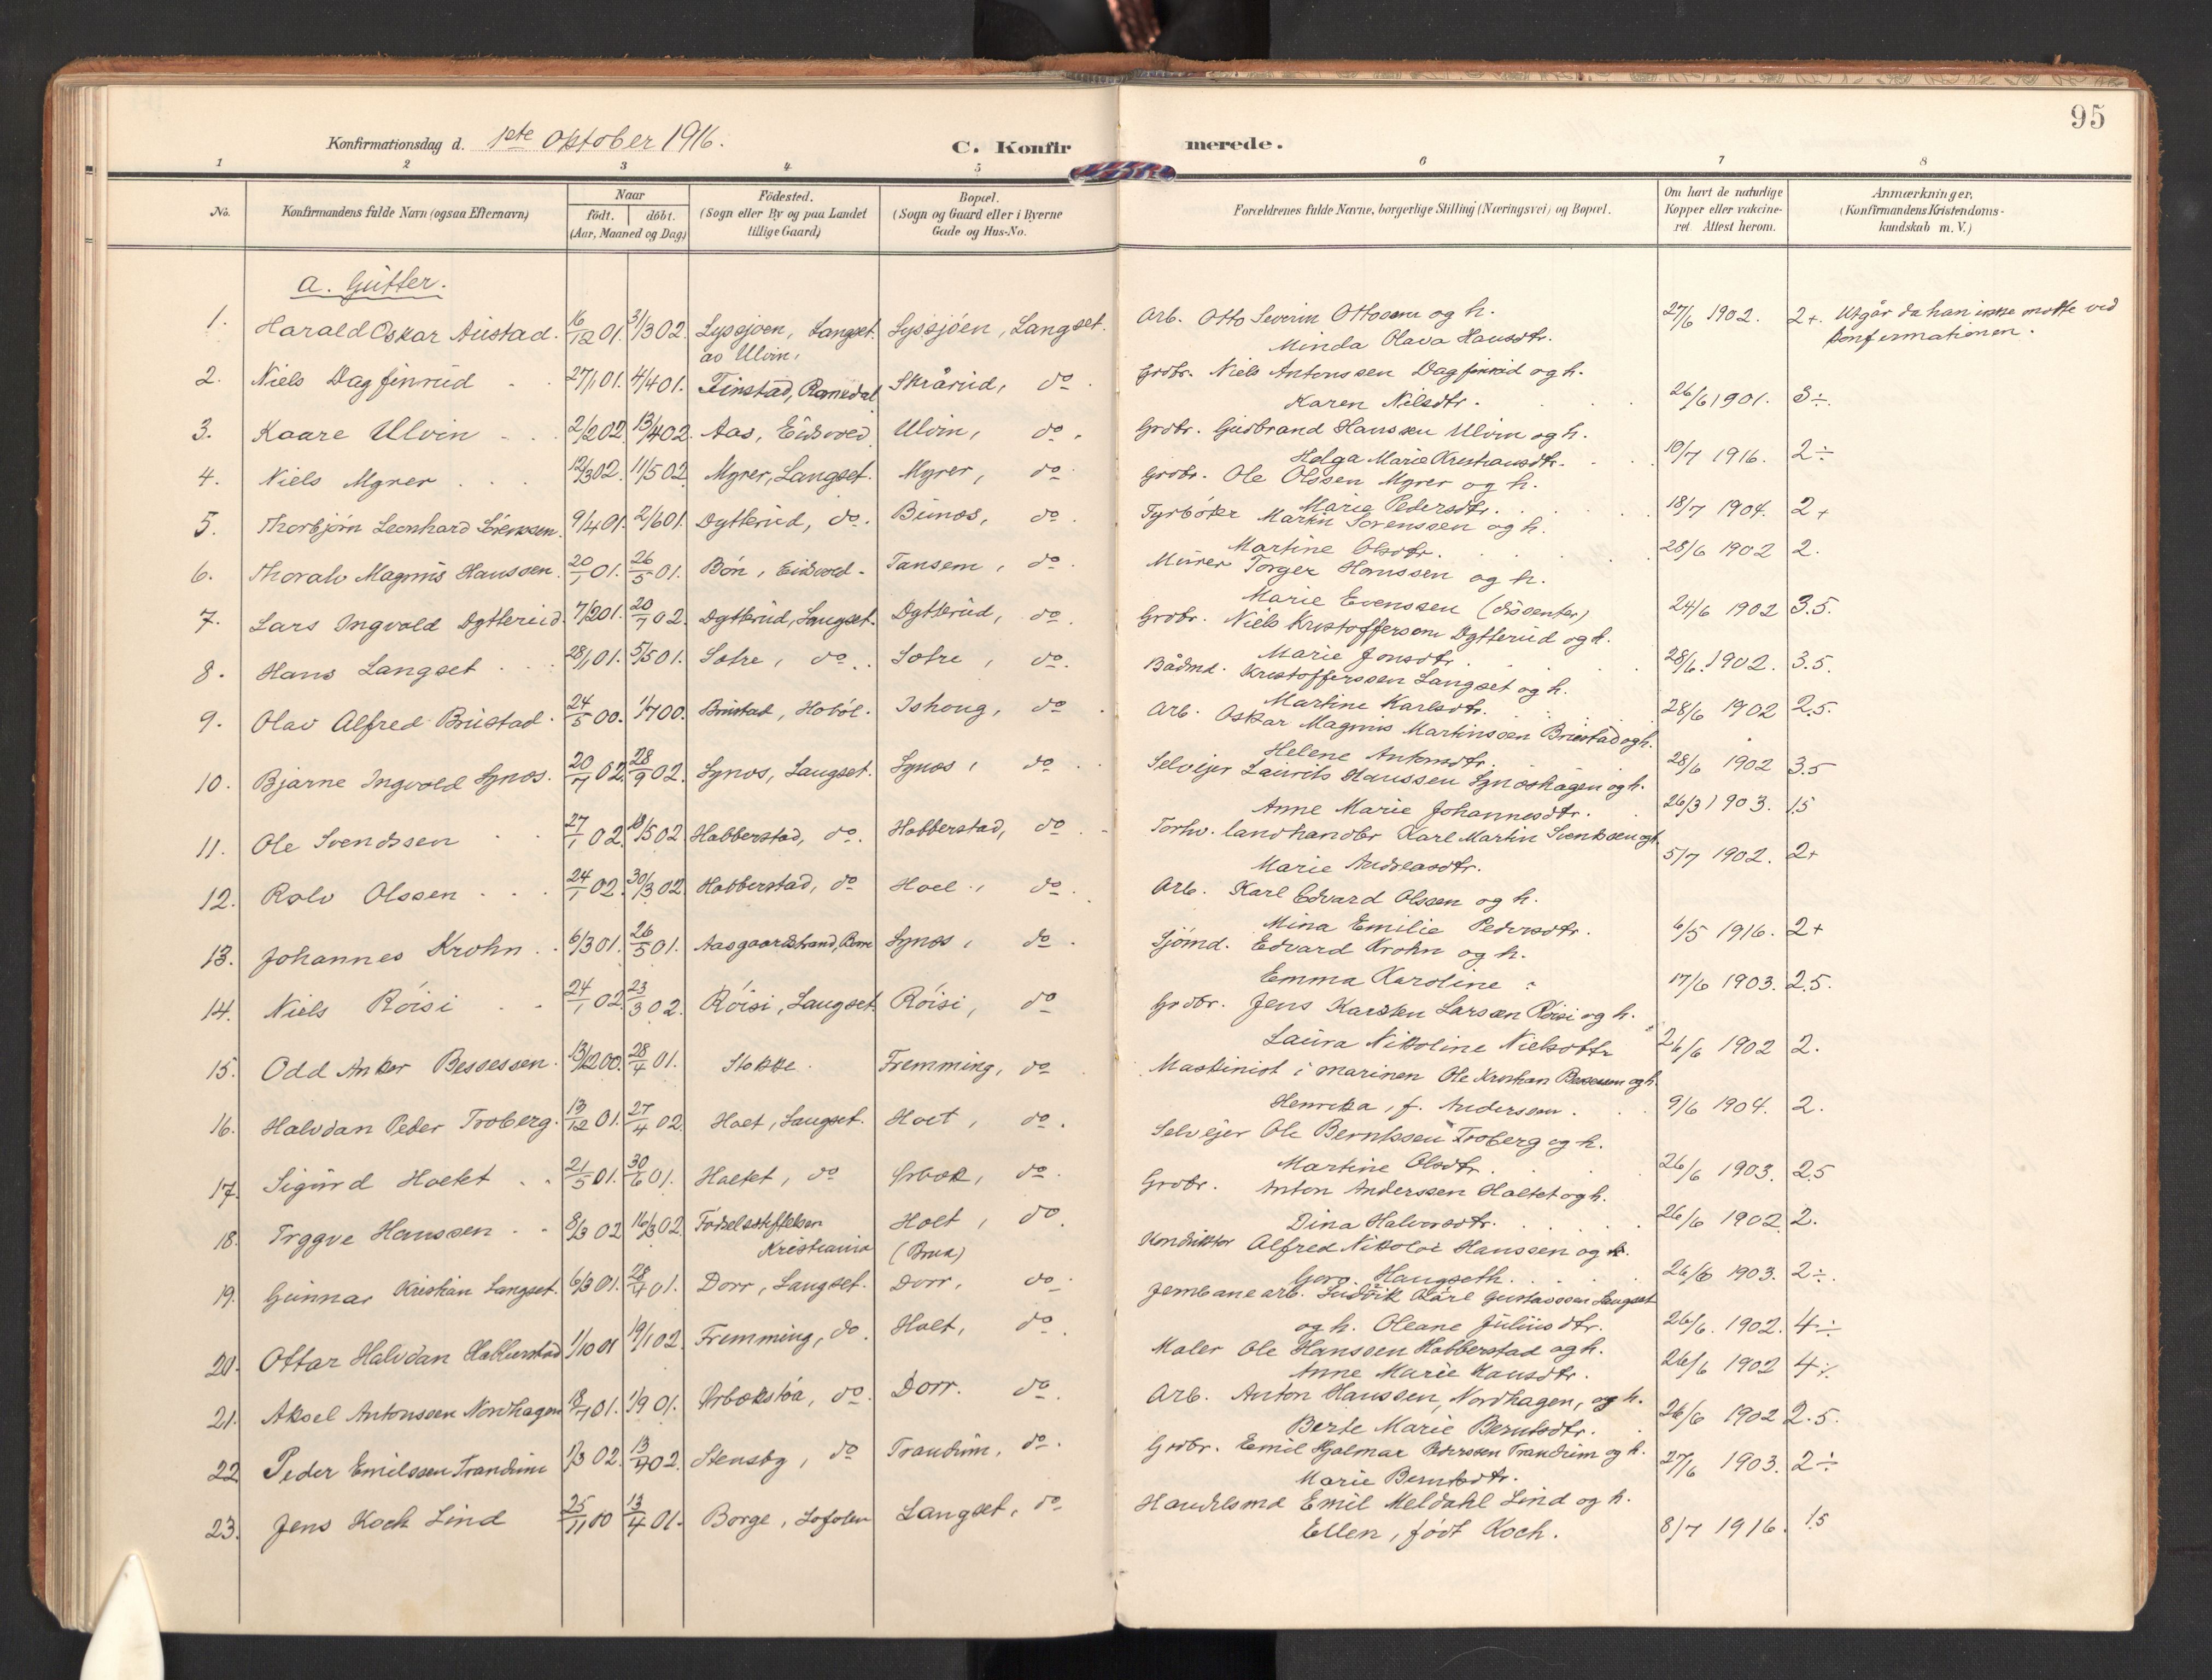 95
Konfirmationsdag d. 1ste Oktober 1916.
C. Konfirmerede.
1 2 3 4 5 6 7 8
No.
Konfirmandens fulde Navn (ogsaa Efternavn)
Naar
födt. döbt.
(Aar, Maaned og Dag)
Födested.
(Sogn eller By og paa Landet
tillige Gaard)
Bopæl.
(Sogn og Gaard eller i Byerne
Gade og Hus-No.
Forældrenes fulde Navne, borgerlige Stilling (Næringsvei) og Bopæl.
Om havt de naturlige
Kopper eller vakcine-
ret. Attest herom.
Anmærkninger,
(Konfirmandens Kristendoms-
kundskab m. V.)
a. Gutter.
1. Harald Oskar Austad. 16/12 01. 31/3 02. Lyssjøen, Langset. Lyssjöen, Langset. Arb. Otto Severin Ottosen og h. 27/6 1902. 2+. Utgår da han ikke møtte ved
av Ulvin, Minda Olava Hansdtr. konfirmationen.
2. Niels Dagfinrud 27/1 01. 4/4 01. Finstad, Romedal Skårud, do. Grdbr. Niels Antonssen Dagfinrud og h.
Karen Nilsdtr. 26/6 1901. 3÷.
3. Kaare Ulvin 2/2 02. 13/4 02. Aas, Eidsvold Ulvin, do. Grdbr. Gudbrand Hanssen Ulvin og h.
Helga Marie Kristiansdtr. 10/7 1916. 2÷
4. Niels Myrer 12/3 02. 11/5 02. Myrer, Langset. Myrer, do Grdbr. Ole Olssen Myrer og h.
Marie Pedersdtr. 18/7 1904. 2+
5. Thorbjørn Leonhard Sörenssen. 9/4 01. 2/6 01. Dytterud, do. Bunes, do. Fyrböter Martin Sorenssen og h.
Martine Olsdtr. 28/6 1902 2.
6. Thoralv Magnus Hanssen. 20/1 01. 26/5 01. Bön, Eidsvold. Tansem, do. Murer Torger Hanssen og h.
Marie Evenssen (dissenter) 24/6 1902 3.5.
7. Lars Ingvald Dytterud. 7/12 01. 20/1 02. Dytterud, Langset. Dytterud, do. Grdbr. Niels Kristoffersen Dytterud og h.
Marie Jonsdtr. 28/6. 1902. 3.5.
8. Hans Langset 28/1 01. 5/5 01. Sotre, do. Sotre, do. Bådmd. Kristofferssen Langset og h.
Martine Karlsdtr. 28/6 1902 2.5.
9. Olav Alfred Brustad. 24/5 00. 1/7 00. Brustad, Hoböl. Ishoug, do. Arb. Oskar Magnus Martinssen Brustad og h.
Helene Antonsdtr. 28/6 1902 3.5
10. Bjarne Ingvold Synes. 20/7 02. 28/9 02. Synes, Langset. Synes, do. Selvejer Laurits Hanssen Syneshagen og h.
Anne Marie Johannesdtr. 26/3 1903. 1.5
11. Ole Svendssen 27/1 02. 18/5 02 Habberstad, do. Habberstad, do. Forhv. landhandler Karl Martin Svendssen og h.
Marie Andreasdtr. 5/7 1902. 2+
12. Rolv Olssen 24/1 02. 30/3 02 Habberstad, do Hoel, do. Arb. Karl Edvard Olssen og h.
Mina Emilie Pedersdtr. 6/5 1916. 2+
13. Johannes Krohn 6/3 01. 26/5 01. Aasgaardstrand, Borre Synes, do. Sjömd. Edvard Krohn og h.
Emma Karoline 17/6 1903. 2.5.
14. Niels Röisi 24/1 02. 23/3 02. Röisi, Langset. Röisi, do Grdbr. Jens Karsten Larssen Röisi og h.
Laura Nikoline Nielsdtr 26/6 1902 2.
15. Odd Anker Bessessen. 13/12 00. 28/4 01. Stokke. Fremming, do Maskinist i marinen Ole Kristian Bessesen og h.
Henrikka, f. Anderssen. 9/6 1904. 2.
16. Halvdan Peder Troberg. 13/12 01. 27/4 02 Holt, Langset. Holt, do. Selvejer Ole Berntssen Troberg og h.
Martine Olsdtr. 26/6 1903. 2.5
17. Sigurd Holtet 21/5 01. 30/6 01. Holtet, do Årbak, do. Grdbr. Anton Anderssen Holtet og h.
Dina Halvorsdtr. 26/6 1902 2.
18. Trygve Hanssen 8/3 02 16/3 02. Födselsstiftelsen Holt, do. Konduktör Alfred Nikolai Hanssen og h.
Kristiania (Brua) Haugseth. 26/6 1903. 2÷.
19. Gunnar Kristian Langset. 6/3 01. 28/4 01. Dorr, Langset. Dorr, do. Jernbanearb. Ludvik Karl Gustavssen Langset
og h. Oleane Juliusdtr. 26/6. 1902. 4÷
20. Ottar Halvdan Habberstad 1/10 01 19/1 02. Fremming, do. Holt, do. Maler Ole Hanssen Habberstad og h.
Anne Marie Hansdtr. 26/6 1902 4÷.
21. Aksel Antonssen Nordhagen 18/7 01. 1/9 01. Årbakstöa, do. Dorr. do. Arb. Anton Hanssen, Nordhagen, og h.
Berte Marie Berntsdtr. 26/6 1902 2.5.
22 Peder Emilssen Trandum 1/3 02. 13/4 02. Stensby, do Trandum, do. Grdbr. Emil Hjalmar Pederssen Trandum og h.
Marie Berntsdtr. 27/6 1903. 2÷
23. Jens Koch Lind 25/11 00 13/4 01. Borge, Lofoten Langset, do Handelsmd Emil Meldahl Lind og h.
Ellen, født Koch. 8/7 1916. 1.5